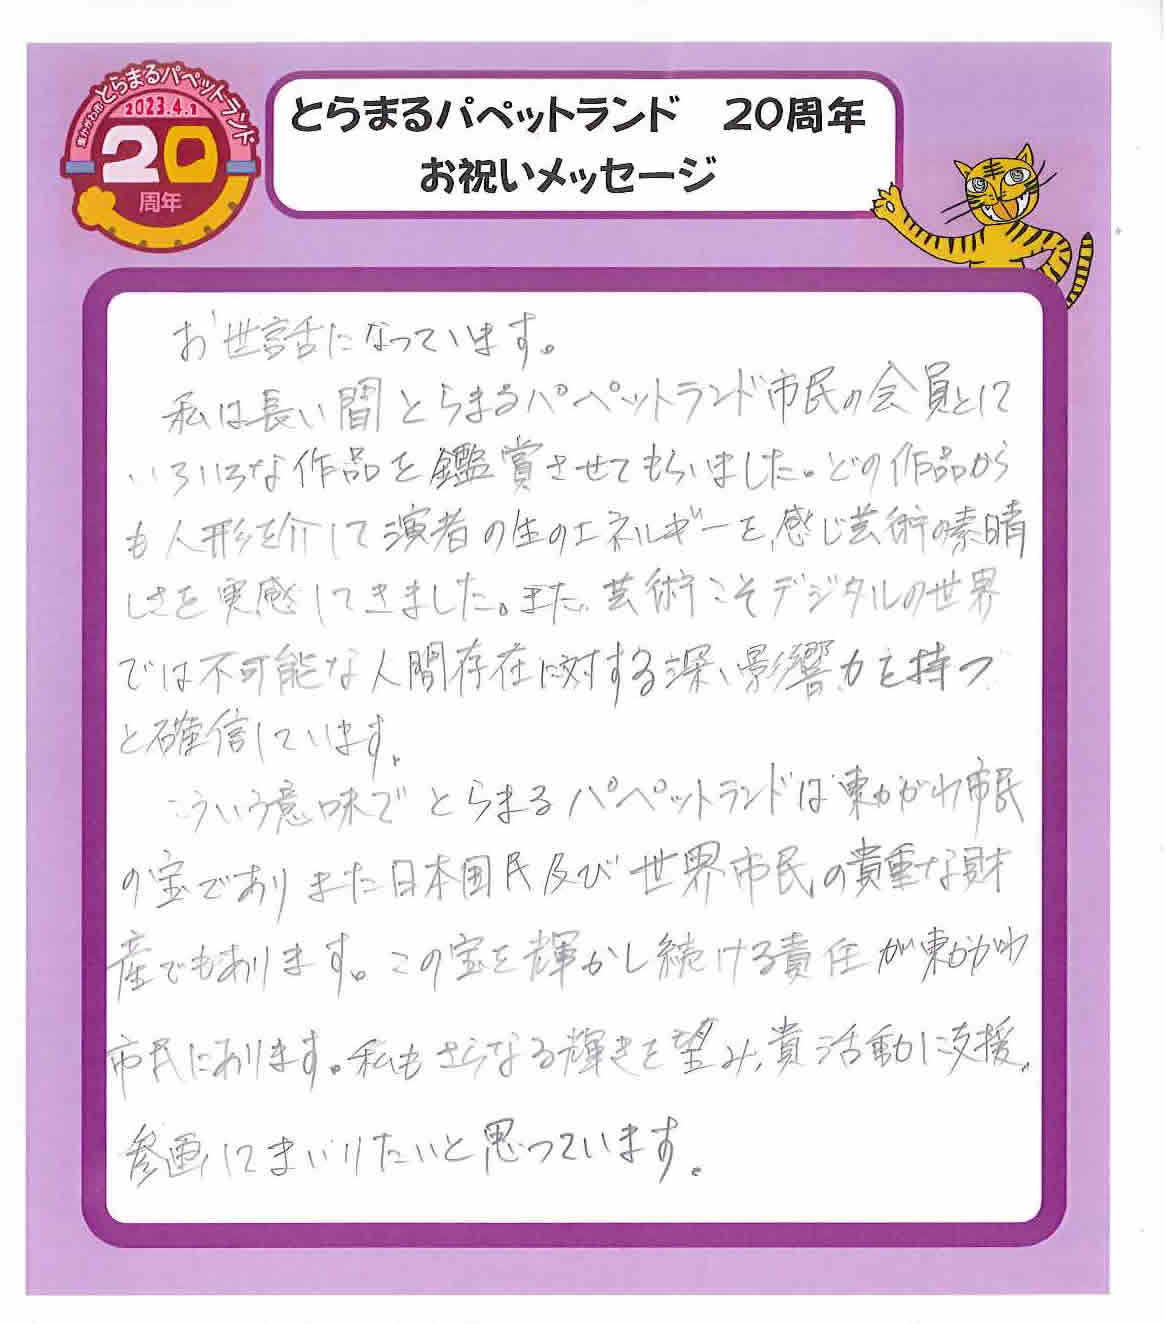 東かがわ市とらまるパペットランド
2023.4.1
20
周年
とらまるパペットランド 20周年
お祝いメッセージ
お世話になっています。
私は長い間とらまるパペットランド市民の会員として
いろいろな作品を鑑賞させてもらいました。どの作品から
も人形を介して演者の生のエネルギーを、感じ芸術の素晴
しさを実感してきました。また、芸術こそデジタルの世界
では不可能な人間存在に対する深い影響力を持つ
と確信しています。
こういう意味でとらまるパペットランドは東かがわ市民
の宝でありまた日本国民及び世界市民の貴重な財
産でもあります。この宝を輝かし続ける責任が東かがわ
市民にあります。私もさらなる輝きを望み、貴活動に支援、
参画してまいりたいと思っています。